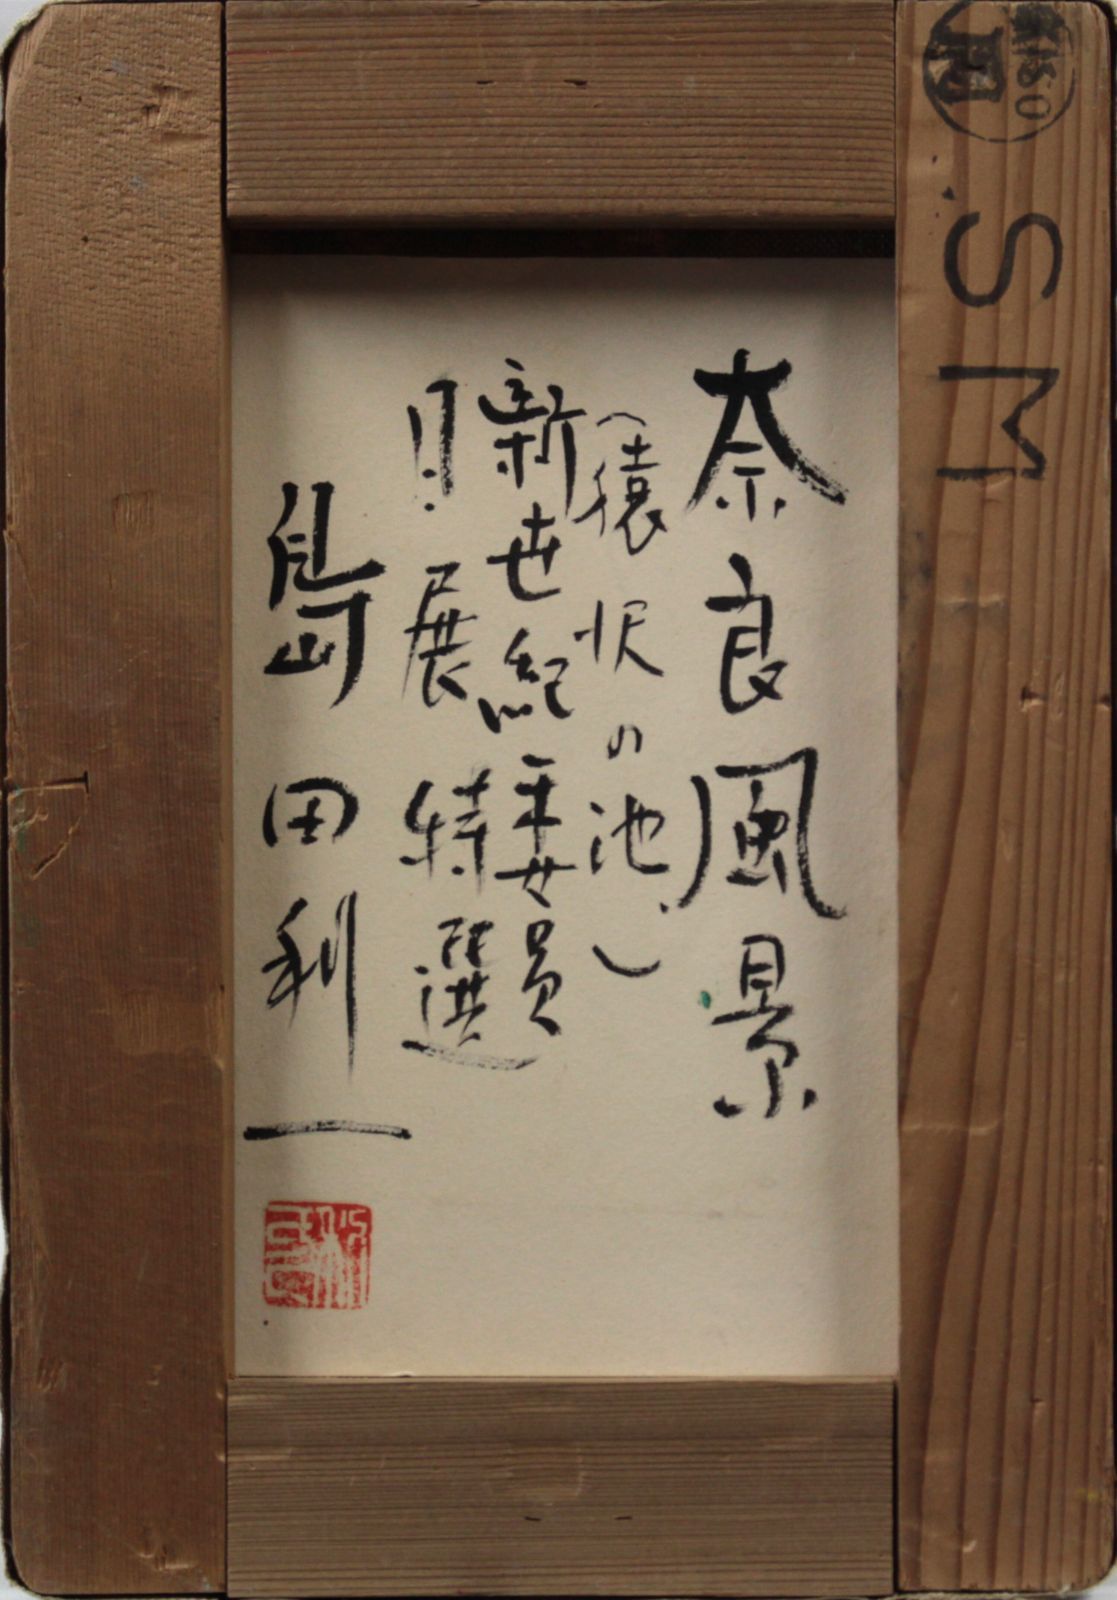 KISO
SM
奈良風景
(猿沢の池)
新世紀委員
日展特選
島田利一